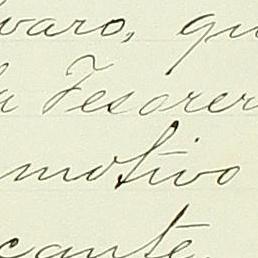 varo, qu
la Tesorer
motivo
cante